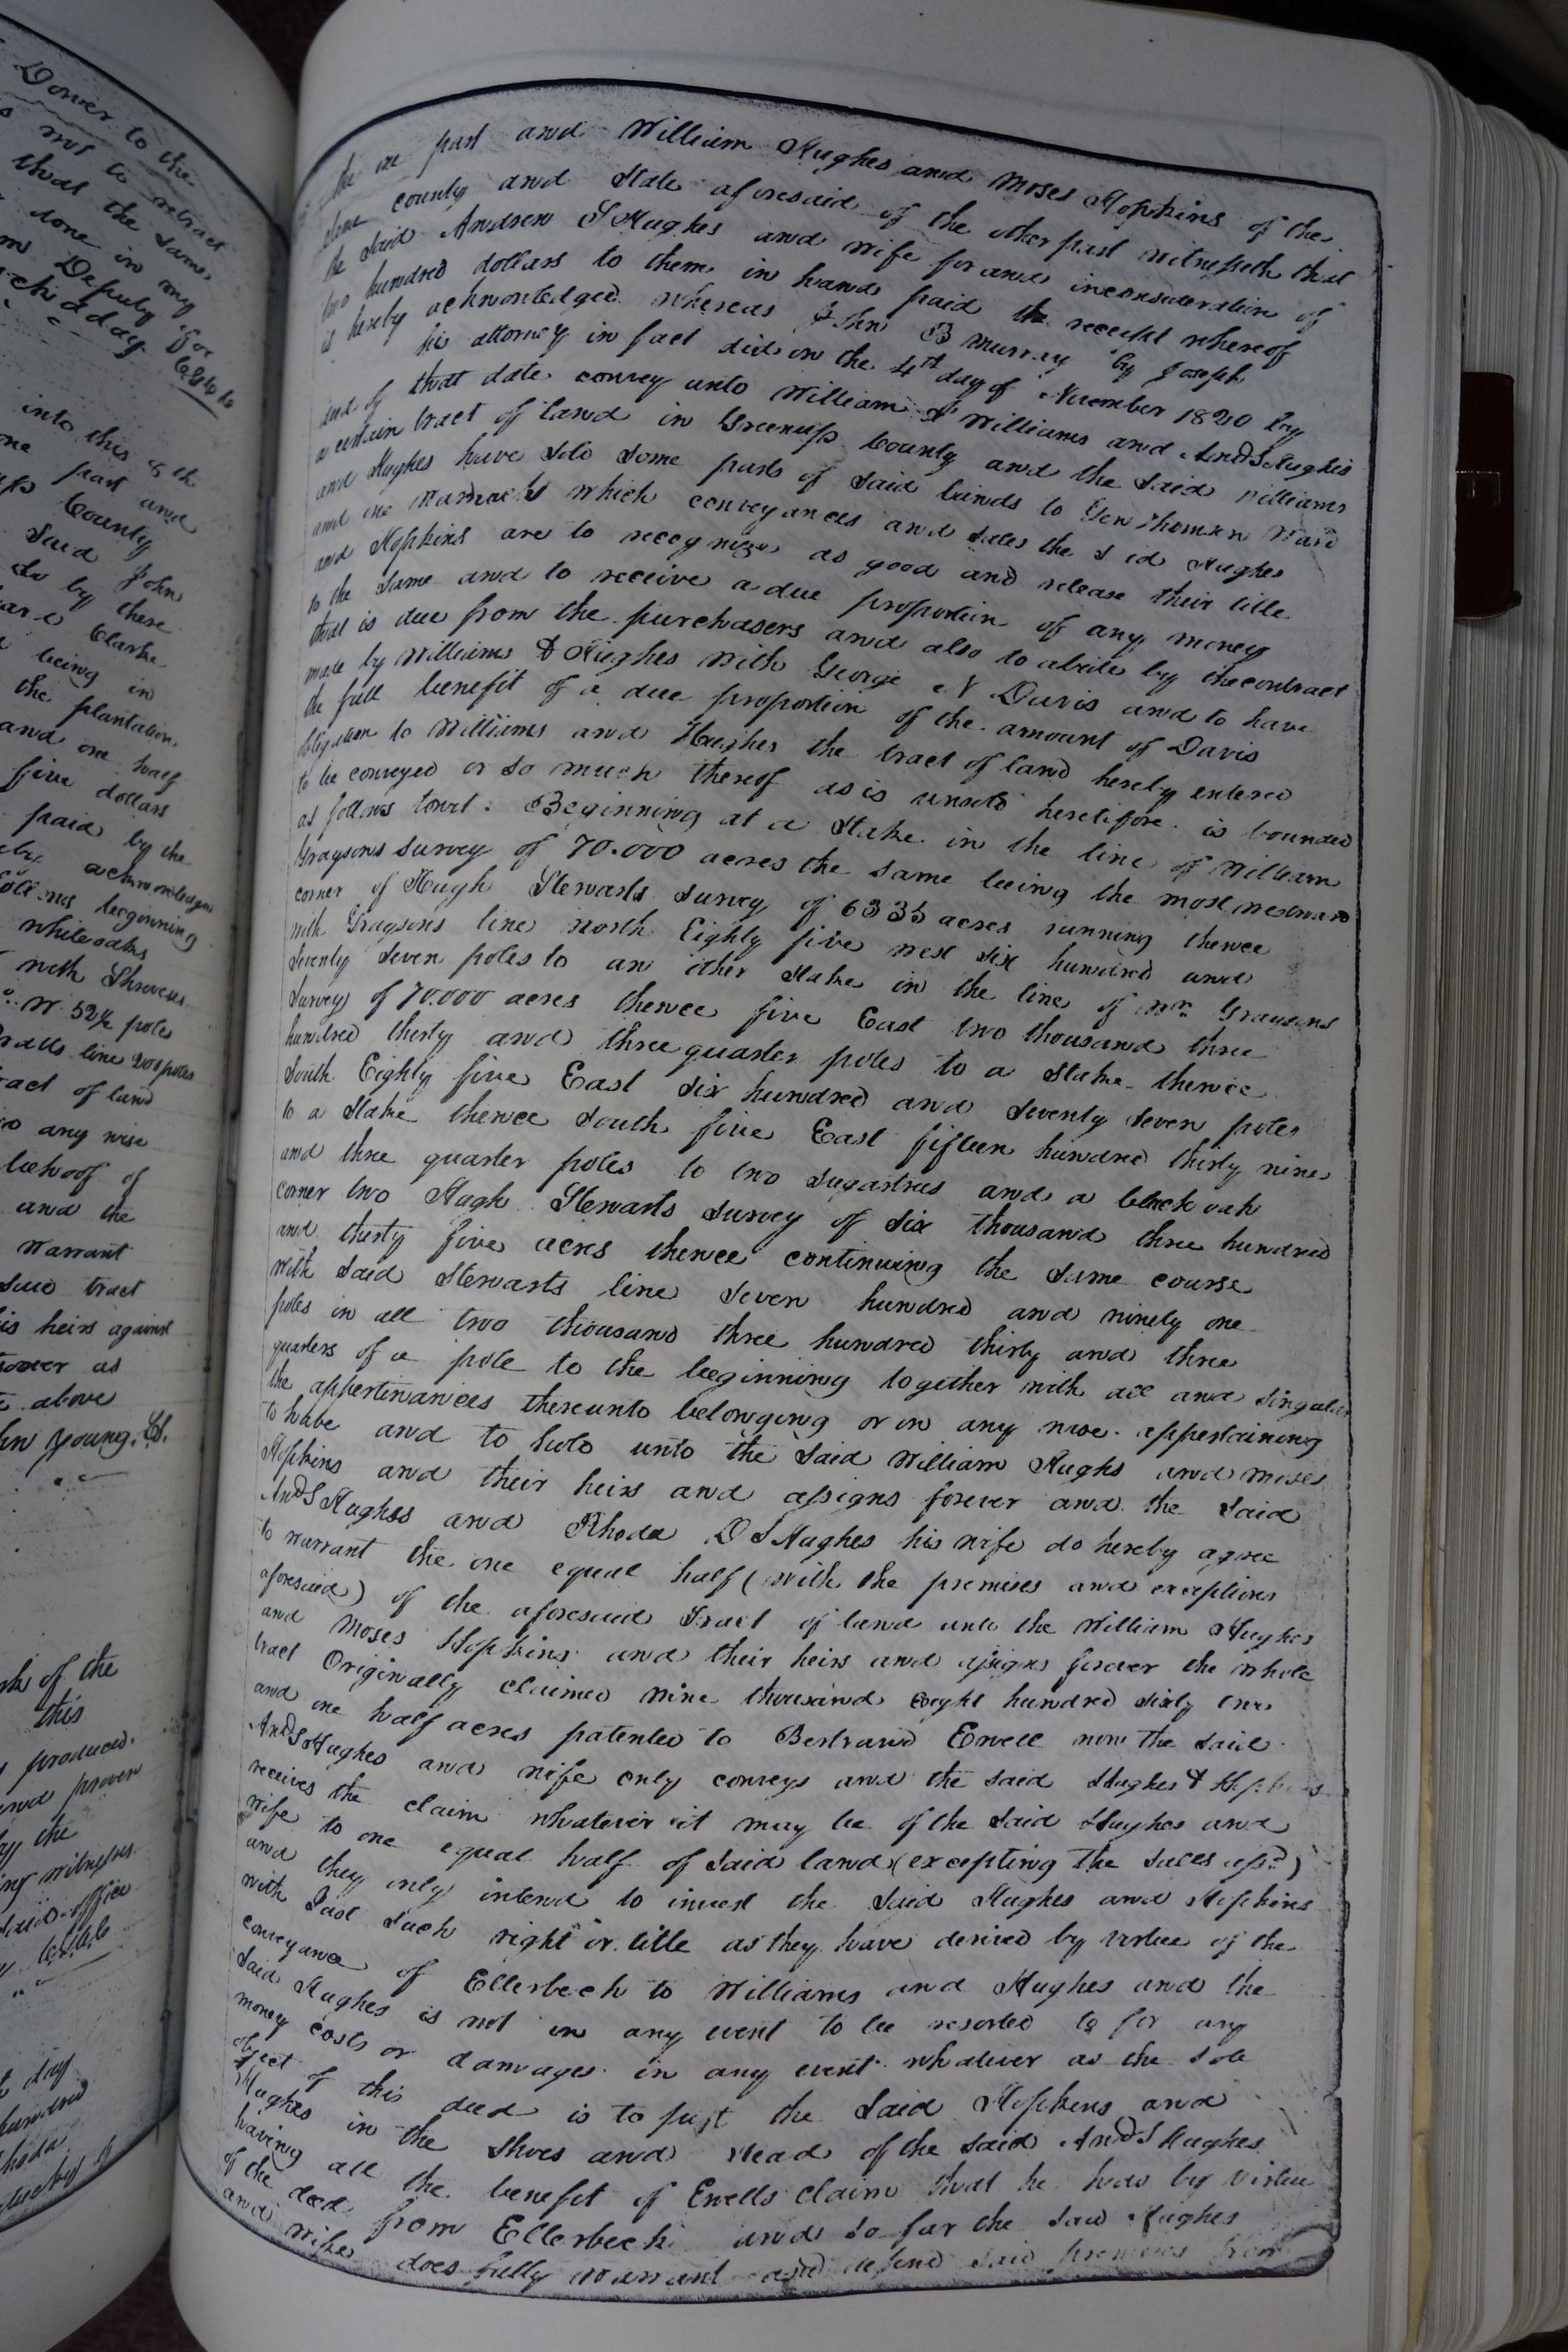 Dower to the
not to retract
that the same
done in my
Deputy for
into this 8th
one part and
County
Said John
do by these
Clarke
being in
the plantation
and one half
five dollars
paid by the
acknowledged
beginning
whiteoaks
with Shreves
W. 52½ poles
line 200 poles
tract of land
any wise
behoof of
and the
warrant
said tract
his heirs against
as
above
Young. LS.
of the
this
produced
and proven
by the
witnesses
office
day
hundred
the one part and William Hughes and Moses Hopkins of the
same county and State aforesaid of the other part witnesseth that
the said Andrew S Hughes and wife for and inconsideration of
two hundred dollars to them in hand paid the receipt whereof
is hereby acknowledged whereas John B Murray by Joseph
his attorney in fact did on the 4th day of November 1820 by
deed of that date convey unto William Williams and AndS Hughes
a certain tract of land in Greenup County and the said Williams
and Hughes have sold some parts of said lands to Gen Thomson Ward
and one which conveyances and sales the said Hughes
and Hopkins are to recognize as good and release their title
to the same and to receive a due proportion of any money
that is due from the purchasers and also to abide by the contract
made by Williams & Hughes with George N Davis and to have
the full benefit of a due proportion of the amount of Davis
obligation to Williams and Hughes the tract of land hereby entered
to be conveyed or so much thereof as is unsold heretofore is bounded
as follows towit: Beginning at a Stake in the line of William
Graysons survey of 70.000 acres the same being the most westward
corner of Hugh Stewarts survey of 6335 acres running thence
with Graysons line north Eighty five west six hundred and
Seventy Seven poles to an other Stake in the line of Wm Graysons
Survey of 70.000 acres thence five East two thousand three
hundred thirty and three quarter poles to a Stake thence
South Eighty five East Six hundred and Seventy Seven poles
to a Stake thence South five East fifteen hundred thirty nine
and three quarter poles to two sugartrees and a black oak
corner two Hugh Stewarts survey of Six thousand three hundred
and thirty five acres thence continuing the same course
with said Stewarts line Seven hundred and ninety one
poles in all two thousand three hundred thirty and three
quarters of a pole to the beginning together with all and singular
the appertinances thereunto belonging or in any wise appertaining
to have and to hold unto the said William Hughs and Moses
Hopkins and their heirs and assigns forever and the said
AndS Hughes and Rhoda D S Hughes his wife do hereby agree
to warrant the one equal half (with the premises and exceptions
aforesaid) of the aforesaid Tract of land unto the William Hughes
and Moses Hopkins and their heirs and assigns forever the whole
tract Originally claimed nine thousand eight hundred sixty two
and one half acres patented to Bertrand Ewell now the said
AndS Hughes and wife only conveys and the said Hughes & Hopkins
receives the claim whatever it may be of the said Hughes and
wife to one equal half of said land (excepting the sales afsd)
and they only intend to invest the said Hughes and Hopkins
with Just such right or title as they have derived by virtue of the
conveyance of Ellerbeck to Williams and Hughes and the
said Hughes is not in any event to be resorted to for any
money costs or damages in any event whatever as the sole
object of this deed is to put the said Hopkins and
Hughes in the Shoes and stead of the said AndS Hughes
having all the benefit of Ewells claim that he has by virtue
of the deed from Ellerbeck and so far the said Hughes
and wife does fully warrant and defend said premises from